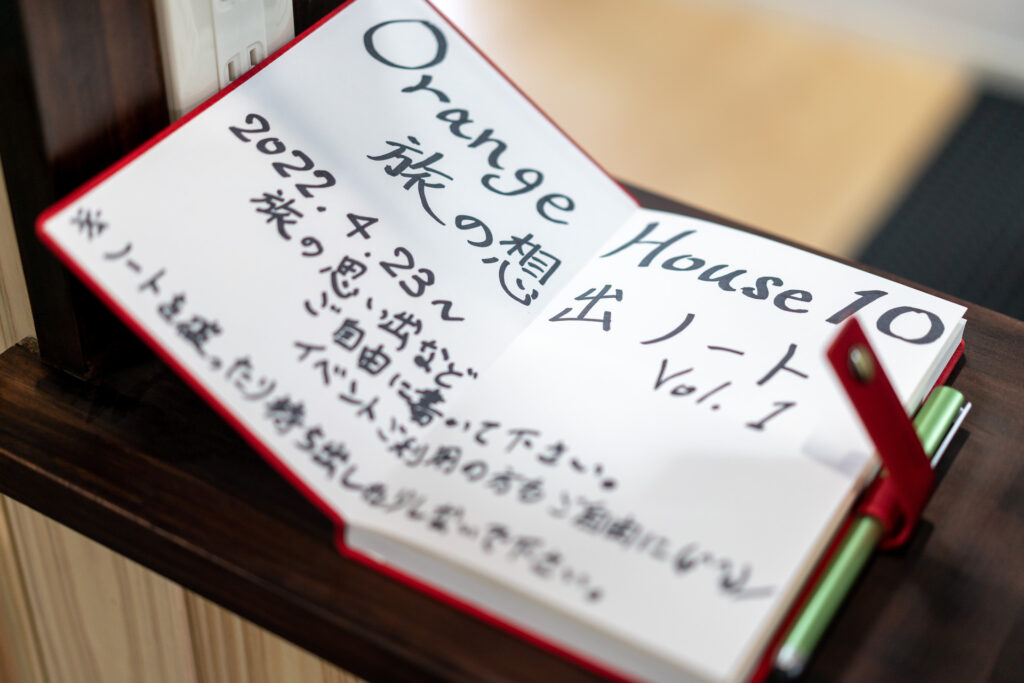 Orange House 10
旅の想出ノート
Vol. 1
2022. 4. 23〜
旅の思い出など
ご自由に書いて下さい。
イベントご利用の方もご自由に(^^)/
※ ノートを破ったり持ち出したりしないで下さい。